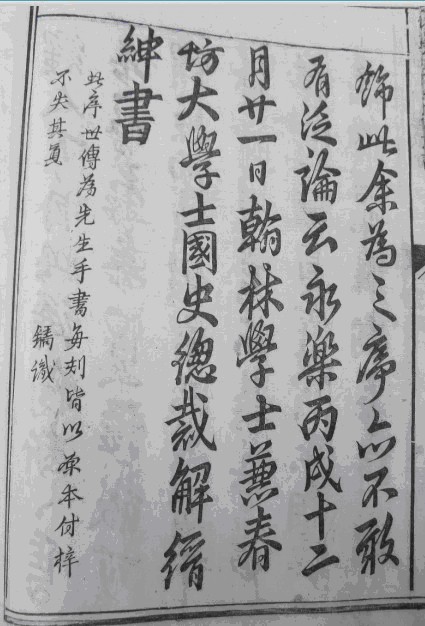 飾此余為之序亦不敢
有泛論云永樂丙戌十二
月廿一日翰林學士兼春
坊大學士國史總裁解縉
紳書
此序世傳為先生手書每刻皆以原本付梓
不失其真
鐫識